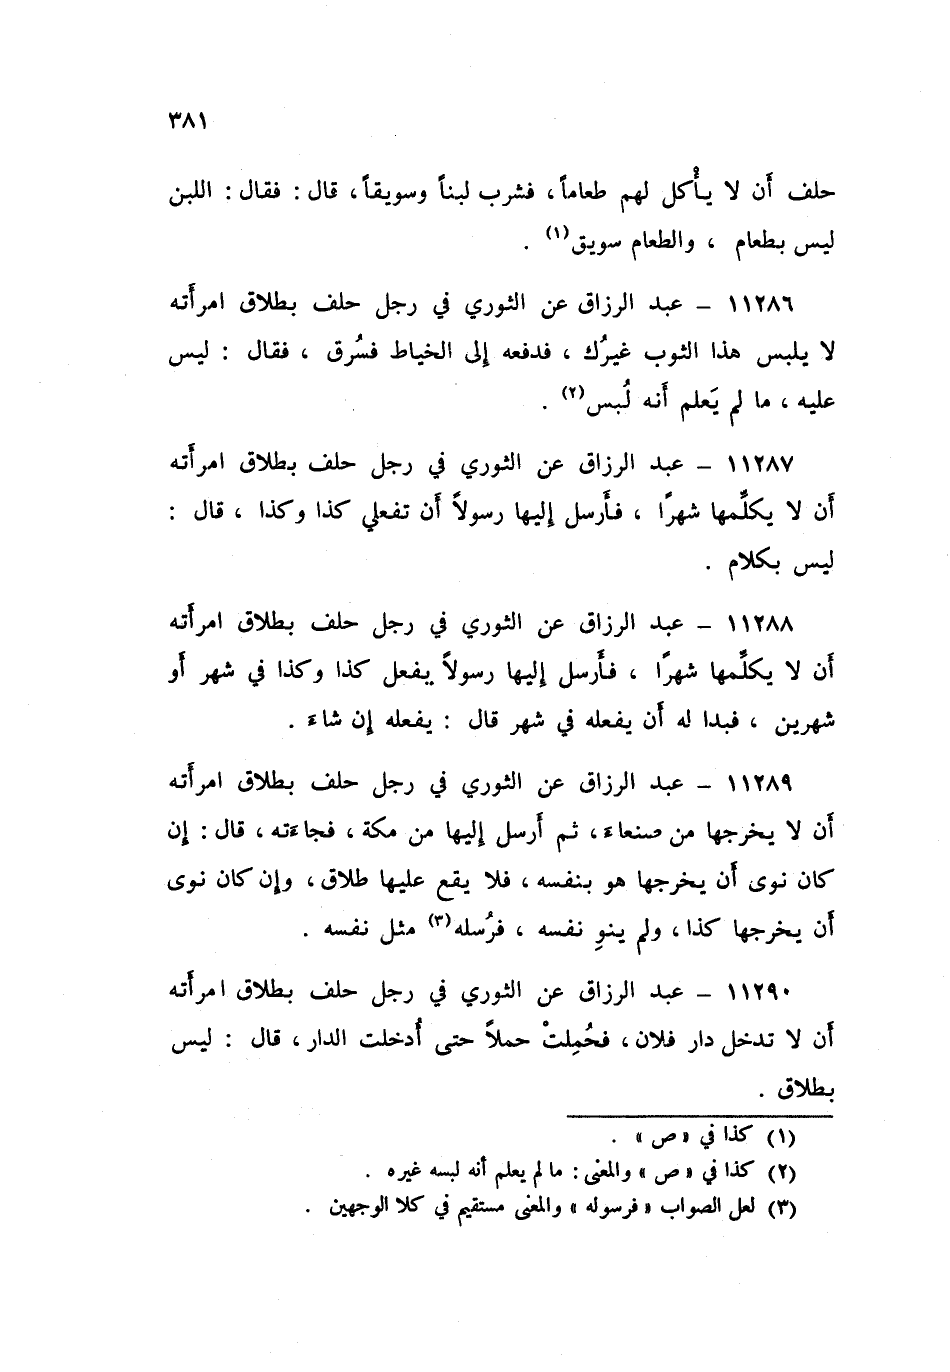 ٣٨١
حلف أَن لا يأْكل لهم طعاماً، فشرب لبناً وسويقاً، قال : فقال : اللبن
ليس بطعام ، والطعام سويق(١) .
١١٢٨٦ – عبد الرزاق عن الثوري في رجل حلف بطلاق امرأَته
لا يلبس هذا الثوب غيرُك ، فدفعه إلى الخياط فسُرق ، فقال : ليس
عليه ، ما لم يَعلم أَنه لُبس(٢) .
١١٢٨٧ – عبد الرزاق عن الثوري في رجل حلف بطلاق امرأَته
أَن لا يكلِّمها شهرًا ، فأَرسل إليها رسولاً أَن تفعلي كذا وكذا ، قال :
ليس بكلام .
١١٢٨٨ – عبد الرزاق عن الثوري في رجل حلف بطلاق امرأَته
أَن لا يكلِّمها شهرًا ، فأَرسل إليها رسولاً يفعل كذا وكذا في شهر أَو
شهرين ، فبدا له أَن يفعله في شهر قال : يفعله إن شاءَ .
١١٢٨٩ – عبد الرزاق عن الثوري في رجل حلف بطلاق امرأَته
أَن لا يخرجها من صنعاءَ، ثم أَرسل إليها من مكة ، فجاءَته ، قال : إن
كان نوى أَن يخرجها هو بنفسه ، فلا يقع عليها طلاق ، وإن كان نوى
أَن يخرجها كذا ، ولم ينوِ نفسه ، فرُسله(٣) مثل نفسه .
١١٢٩٠ – عبد الرزاق عن الثوري في رجل حلف بطلاق امرأَته
أَن لا تدخل دار فلان ، فحُمِلتْ حملاً حتى أُدخلت الدار ، قال : ليس
بطلاق .
(١) كذا في « ص » .
(٢) كذا في « ص » والمعنى : ما لم يعلم أنه لبسه غيره .
(٣) لعل الصواب « فرسوله » والمعنى مستقيم في كلا الوجهين .